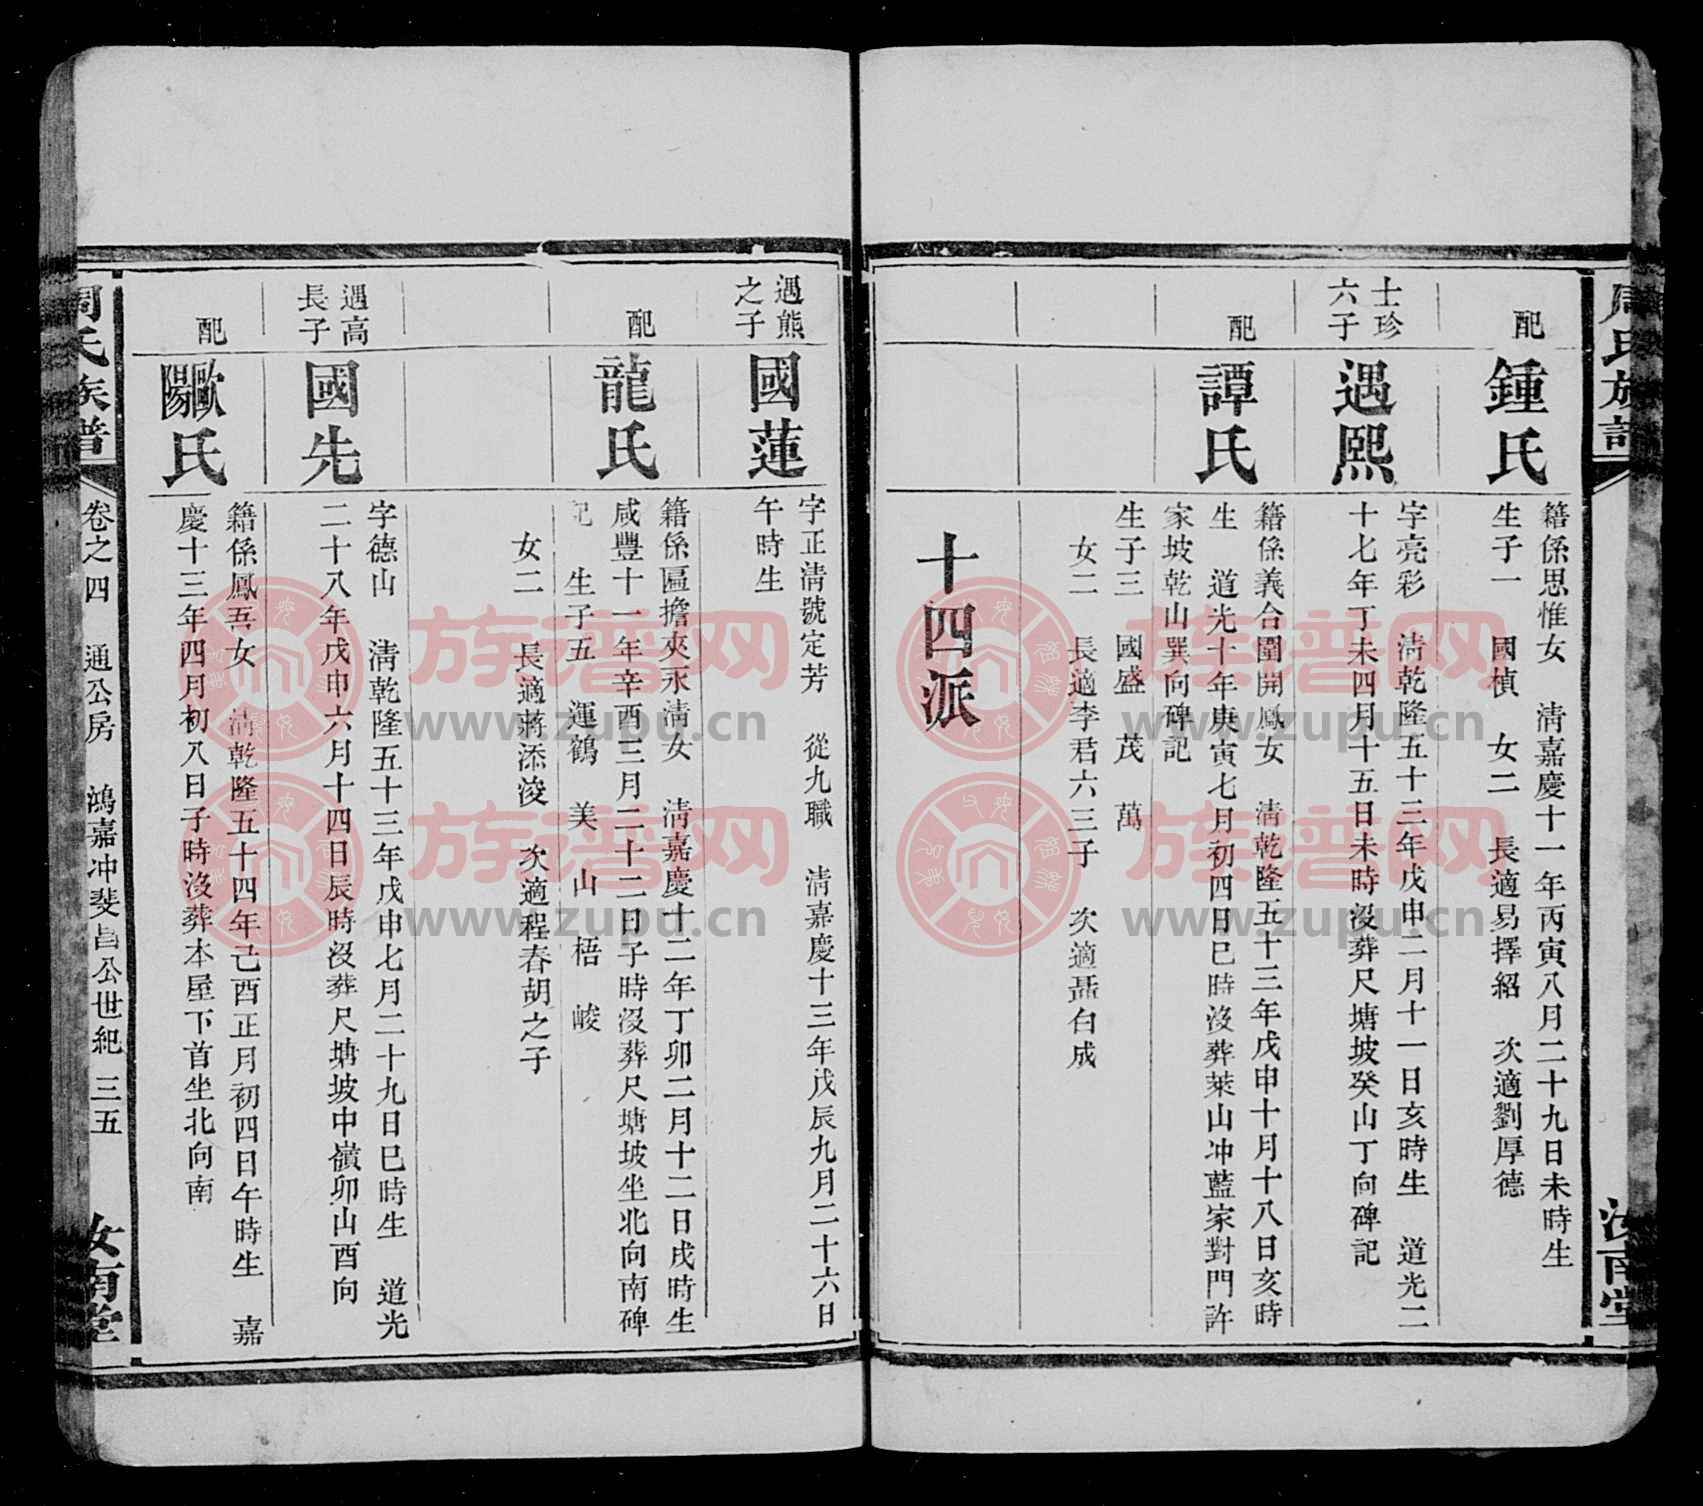 周氏族譜
汝南堂
配
鍾氏
籍係思惟女 清嘉慶十一年丙寅八月二十九日未時生
生子一 國楨 女二 長適易擇紹 次適劉厚德
士珍
六子
遇熙
字亮彩 清乾隆五十三年戊申二月十一日亥時生 道光二
十七年丁未四月十五日未時沒葬尺塘坡癸山丁向碑記
配
譚氏
籍係義合圍開鳳女 清乾隆五十三年戊申十月十八日亥時
生 道光十年庚寅七月初四日巳時沒葬萊山冲藍家對門許
家坡乾山巽向碑記
生子三 國盛 茂 萬
女二 長適李君六三子 次適聶白成
十四派
遇熊
之子
國蓮
字正清號定芳 從九職 清嘉慶十三年戊辰九月二十六日
午時生
配
龍氏
籍係區擔夾永清女 清嘉慶十二年丁卯二月十二日戌時生
咸豐十一年辛酉三月二十二日子時沒葬尺塘坡坐北向南碑
記 生子五 運鶴 美 山 梧 峻
女二 長適蔣添浚 次適程春胡之子
遇高
長子
國先
字德山 清乾隆五十三年戊申七月二十九日巳時生 道光
二十八年戊申六月十四日辰時沒葬尺塘坡中嶺卯山酉向
配
歐陽氏
籍係鳳吾女 清乾隆五十四年己酉正月初四日午時生 嘉
慶十三年四月初八日子時沒葬本屋下首坐北向南
周氏族譜 卷之四 通公房 鴻嘉冲斐昌公世紀 三五 汝南堂
族谱网
www.zupu.cn
族谱网
www.zupu.cn
族谱网
www.zupu.cn
族谱网
www.zupu.cn